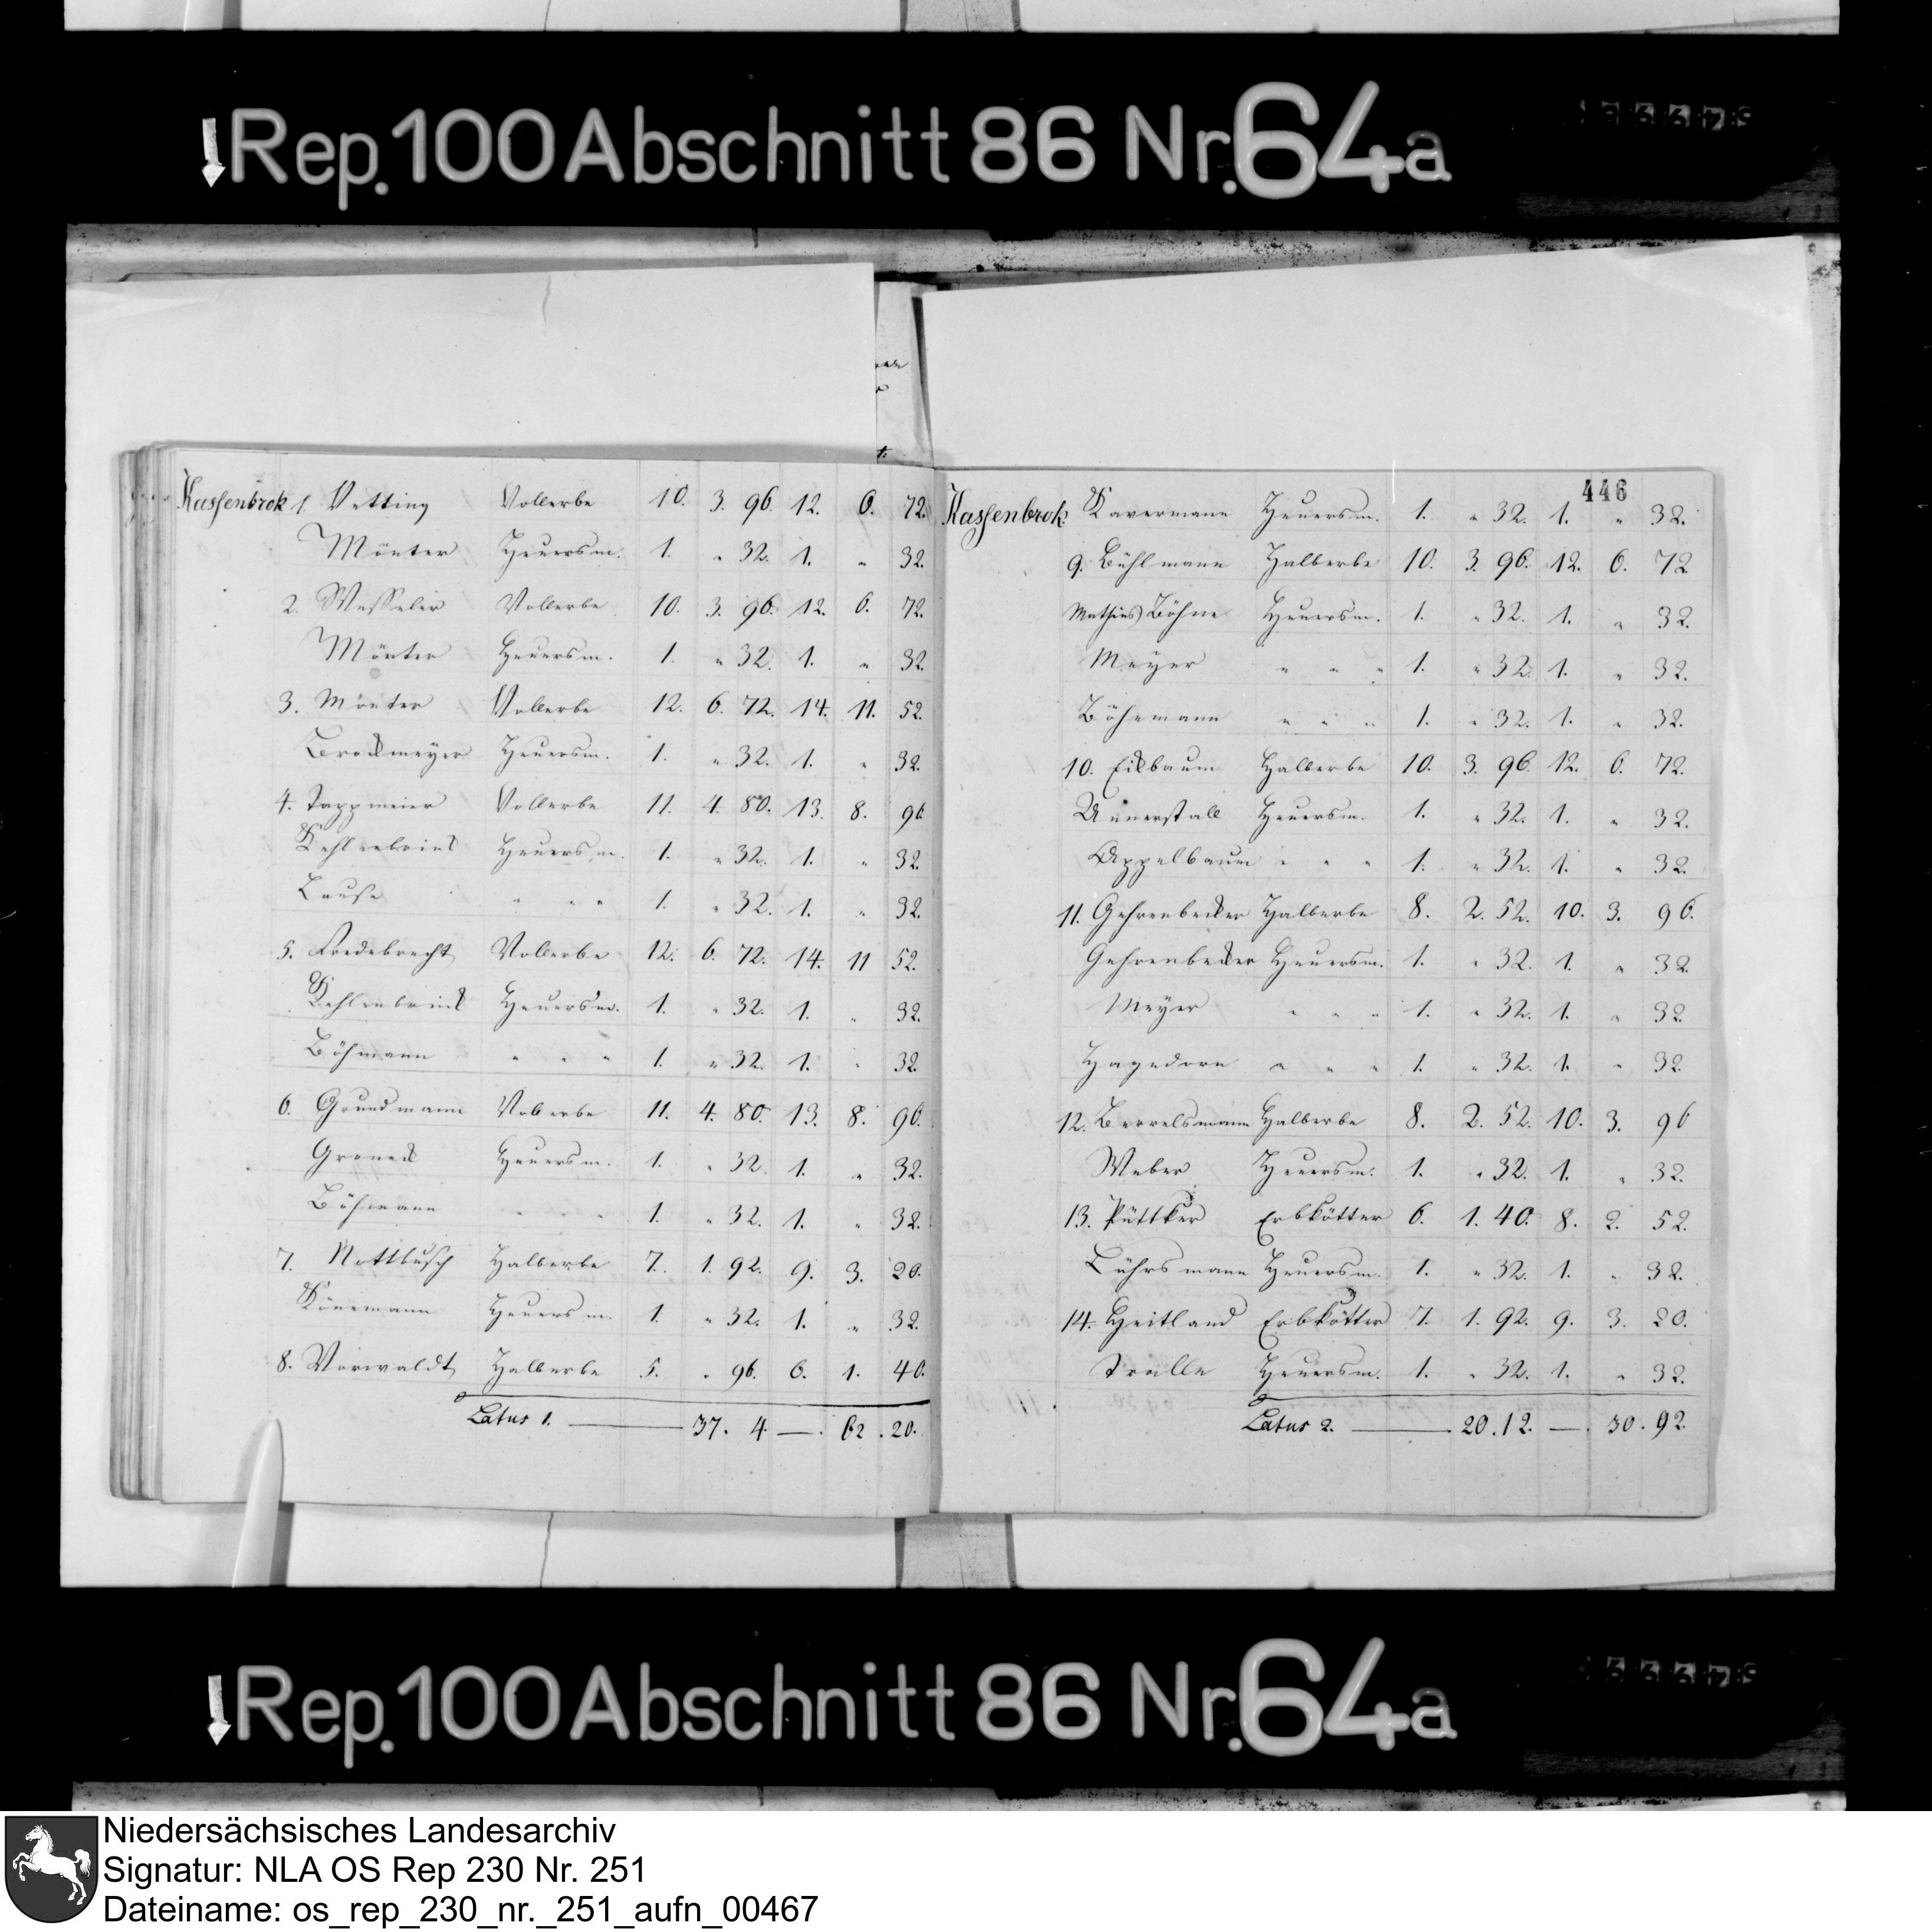 Rep.100 Abschnitt 86 Nr. 64a
Kassenbrok 1. Vetting Vollerbe 10. 3. 96. 12. 6. 72.
Mönter Heuersm. 1. " 32. 1. " 32.
2. Wesseler Vollerbe 10. 3. 96. 12. 6. 72.
Mönter Heuersm. 1. " 32. 1. " 32.
3. Mönter Vollerbe 12. 6. 72. 14. 11. 52.
Brockmeyer Heuersm. 1. " 32. 1. " 32.
4. Tappmeier Vollerbe 11. 4. 80. 13. 8. 96
Kehlenbrink Heuersm. 1. " 32. 1. " 32.
Lause " " " 1. " 32. 1. " 32.
5. Fredebrecht Vollerbe 12. 6. 72. 14. 11 52.
Kehlenbrink Heuersm. 1. " 32. 1. " 32.
Böhmann " " " 1. " 32. 1. " 32.
6. Grundmann Vollerbe 11. 4. 80. 13. 8. 96.
Groneck Heuersm. 1. " 32. 1. " 32.
Böhmann " " " 1. " 32. 1. " 32.
7. Nottbusch Halberbe 7. 1. 92. 9. 3. 20.
Könemann Heuersm. 1. " 32. 1. " 32.
8. Vorwaldt Halberbe 5. " 96. 6. 1. 40.
Latus 1. — 37. 4. —. 62. 20.
446
Kassenbrok: Kavermann Heuersm. 1. " 32. 1. " 32.
9. Bühlmann Halberbe 10. 3. 96. 12. 6. 72
Mathias Böhne Heuersm. 1. " 32. 1. " 32.
Meyer " " " 1. " 32. 1. " 32.
Böhemann " " " 1. " 32. 1. " 32.
10. Eickbaum Halberbe 10. 3. 96. 12. 6. 72.
Unnerstall Heuersm. 1. " 32. 1. " 32.
Appelbaum " " " 1. " 32. 1. " 32.
11. Gehrenbecker Halberbe 8. 2. 52. 10. 3. 96.
Gehrenbecker Heuersm. 1. " 32. 1. " 32
Meyer " " " 1. " 32. 1. " 32
Hagedorn " " " 1. " 32. 1. " 32.
12. Berrelsmann Halberbe 8. 2. 52. 10. 3. 96
Weber Heuersm. 1. " 32. 1. " 32.
13. Püttker Erbkötter 6. 1. 40. 8. 2. 52.
Lührsmann Heuersm. 1. " 32. 1. " 32.
14. Heitland Erbkötter 7. 1. 92. 9. 3. 20.
Tralle Heuersm. 1. " 32. 1. " 32.
Latus 2. — 20. 12. —. 30. 92.
Rep.100 Abschnitt 86 Nr. 64a
Niedersächsisches Landesarchiv
Signatur: NLA OS Rep 230 Nr. 251
Dateiname: os_rep_230_nr._251_aufn_00467